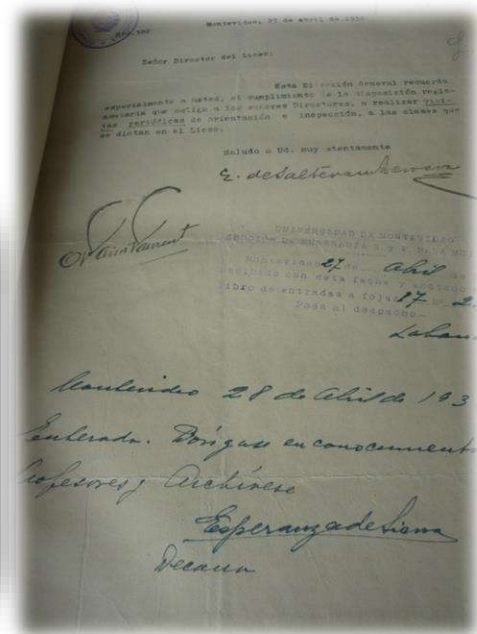 Montevideo, 27 de abril de 193
Señor Director del Liceo:
Esta Dirección General recuerda
especialmente a usted, el cumplimiento de la disposición regla-
mentaria que obliga a los señores Directores, a realizar visi-
tas periódicas de orientación e inspección, a las clases que
se dictan en el Liceo.
Saludo a Ud. muy atentamente
E. de Salterain
UNIVERSIDAD DE MONTEVIDEO
SECCIÓN DE ENSEÑANZA S. y P.
Montevideo 27 de abril
Recibido con esta fecha y
libro de entradas a fojas 17
Pase al despacho
Montevideo 28 de Abril de 193
Enterada. Póngase en conocimiento
Profesores y Archívese
Esperanza de Sierra
Decana